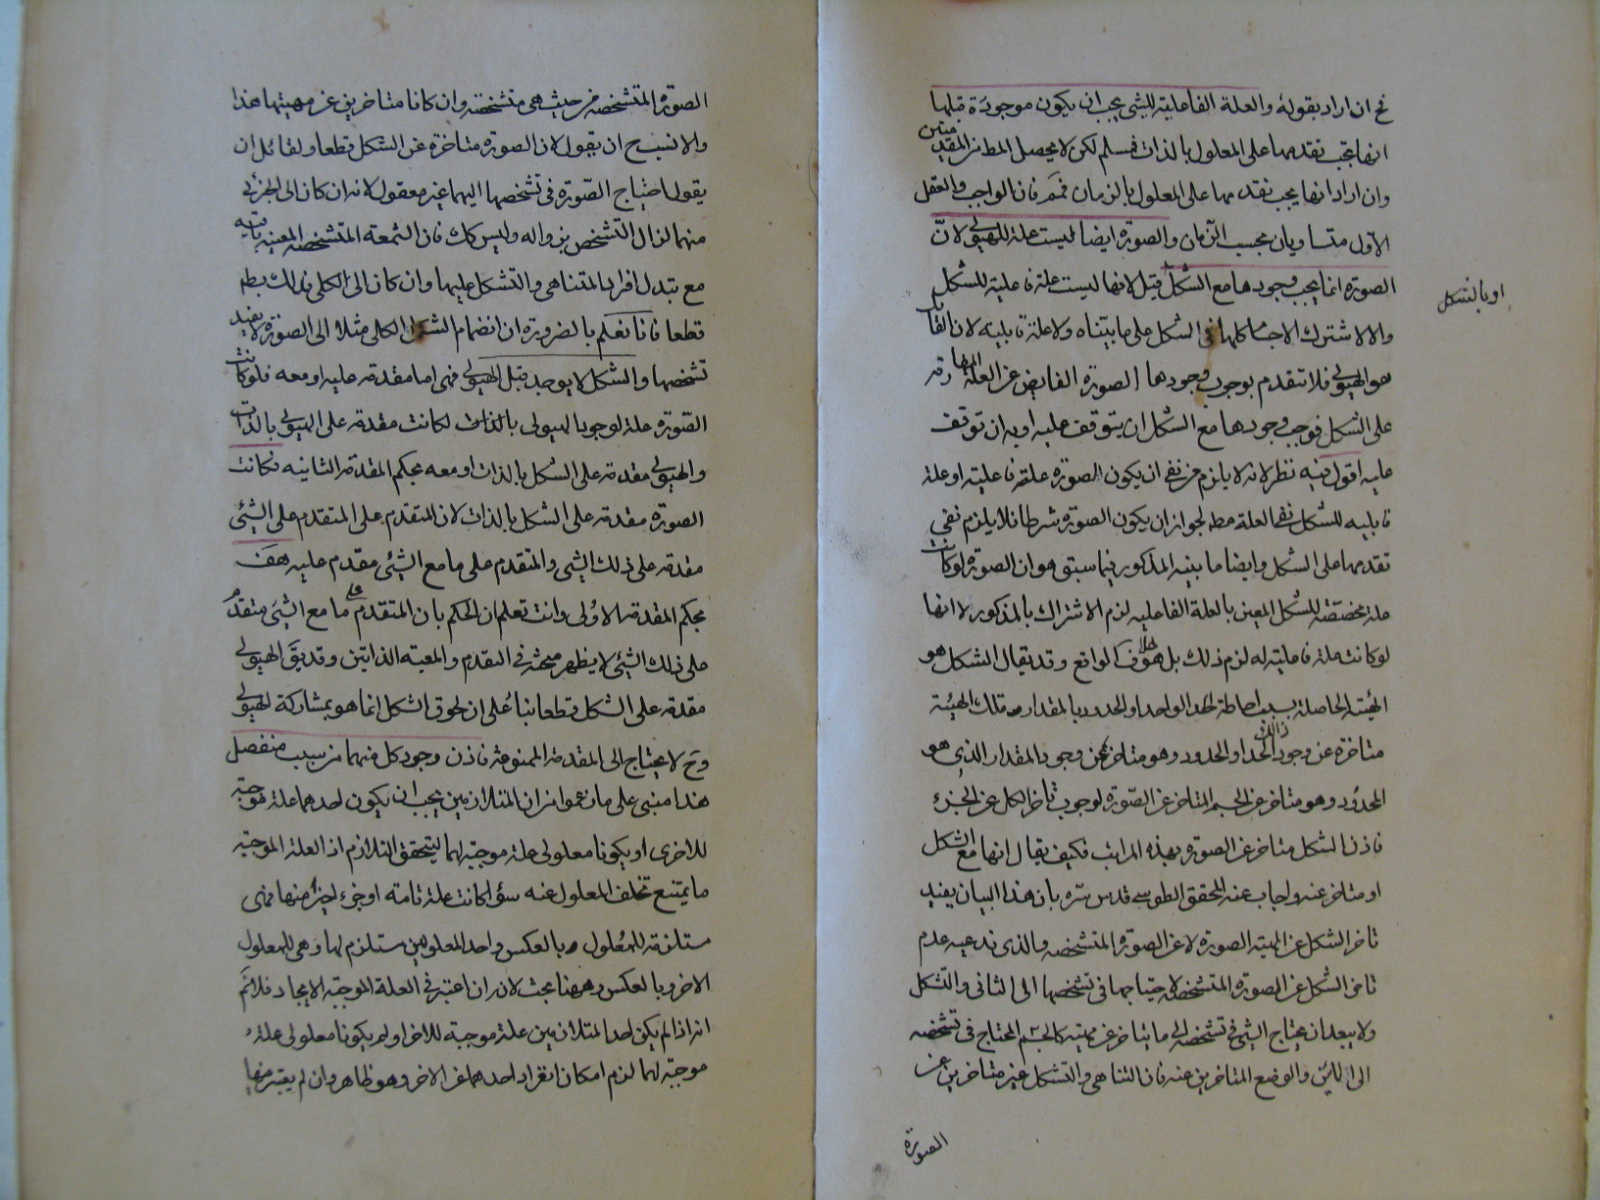 نخ ان اراد بقوله والعلة الفاعلية للشي يجب ان يكون موجودة قبلها
انها يجب تقدمها على المعلول بالذات فمسلم لكن لا يحصل المط من المقدمتين
وان اراد انها يجب تقدمها على المعلول بالزمان فمم فان الواجب والعقل
الاول متساويان بحسب الزمان والصورة ايضا ليست علة للهيولى لان
الصورة انما يجب وجودها مع الشكل قيل لانها ليست علة فاعلية للشكل
او بالشكل
والا لاشترك الاجسام كلها في الشكل على ما بيناه ولا علة قابلية لان القابل
هو الهيولى فلا تتقدم بوجوب وجودها الصورة الفايض عن العلة المفارقة
على الشكل فوجب وجودها مع الشكل ان يتوقف عليه او به ان توقف
عليه اقول فيه نظر لانه لا يلزم من نفي ان يكون الصورة علة فاعلية او علة
قابلية للشكل نفي العلة مط لجواز ان يكون الصورة شرطا فلا يلزم نفي
تقدمها على الشكل وايضا ما بينه المذكور فيما سبق هو ان الصورة لو كانت
علة مخصصة للشكل المعين بالعلة الفاعلية لزم الاشتراك بالمذكور لا انها
لو كانت علة فاعلية له لزم ذلك بل هو خلاف الواقع وقد يقال الشكل هو
الهيئة الحاصلة بسبب احاطة الحد الواحد او الحدود بالمقدار وتلك الهيئة
متاخرة عن وجود ذلك الحد او الحدود وهو متاخر عن وجود المقدار الذي هو
المحدود وهو متاخر عن الجسم المتاخر عن الصورة لوجوب تاخر الكل عن الجزء
فاذن الشكل متاخر عن الصورة بهذه المراتب فكيف يقال انها مع الشكل
او متاخر عنه واجاب عنه المحقق الطوسي قدس سره بان هذا البيان يفيد
تاخر الشكل عن المهية الصورة لا عن الصورة المتشخصه والذي ندعيه عدم
تاخر الشكل عن الصورة المتشخصة لاحتياجها في تشخصها الى الثاني والتشكل
ولا يبعد ان يحتاج الشيئ في تشخصه الى ما يتاخر عن مهيته كالجسم المحتاج في تشخصه
الى الاين والوضع المتاخرين عنه فان التناهي والتشكل غير متاخرين عن
الصورة
الصورة المتشخصه من حيث هي متشخصة وان كانا متاخرين عن مهيتها هذا
والانسب ح ان يقول لان الصورة متاخرة عن الشكل قطعا ولقائل ان
يقول احتياج الصورة في تشخصها اليهما غير معقول لانه ان كان الى الجزئي
منهما لزال التشخص بزواله وليس كك فان الشمعة المتشخصه المعينه باقية
مع تبدل افراد المتناهي والتشكل عليها وان كان الى الكلي فذلك بط
قطعا فانا نعلم بالضرورة ان انضمام الشكل الكلي مثلا الى الصورة لا يفيد
تشخصها والشكل لا يوجد قبل الهيولى فهي اما مقدمة عليه او معه فلو كانت
الصورة علة لوجود الهيولى بالذات لكانت مقدمة على الهيولى بالذات
والهيولى مقدمة على الشكل بالذات او معه بحكم المقدمة الثانيه فكانت
الصورة مقدمة على الشكل بالذات لان المتقدم على المتقدم على الشيئ
مقدمة على ذلك الشيئ والمتقدم على ما مع الشيئ مقدم عليه هف
بحكم المقدمة الاولى وانت تعلم ان الحكم بان المتقدم على ما مع الشيئ متقدم
على ذلك الشيئ لا يظهر صحته في التقدم والمعية الذاتيتين وقد يق الهيولى
مقدمة على الشكل قطعا بناء على ان لحوق الشكل انما هو بمشاركة الهيولى
وح لا يحتاج الى المقدمة الممنوعة فاذن وجود كل منهما من سبب منفصل
هذا مبني على ما زعموا من ان المتلازمين يجب ان يكون احدهما علة موجبة
للاخرى او يكونا معلولي علة موجبة لهما ليتحقق التلازم اذ العلة الموجبة
ما يمتنع تخلف المعلول عنه سواء كانت علة تامة او جزء اخيرا منها فهي
مستلزمة للمعلول وبالعكس واحد المعلولين مستلزم لها وهي للمعلول
الاخر وبالعكس وههنا بحث لانه ان اعتبر في العلة الموجبة الايجاد فلا نم
انه اذا لم يكن احد المتلازمين علة موجبة للاخر او لم يكونا معلولي علة
موجبة لهما لزم امكان انفراد احدهما عن الاخر وهو ظاهر وان لم يعتبر فيها